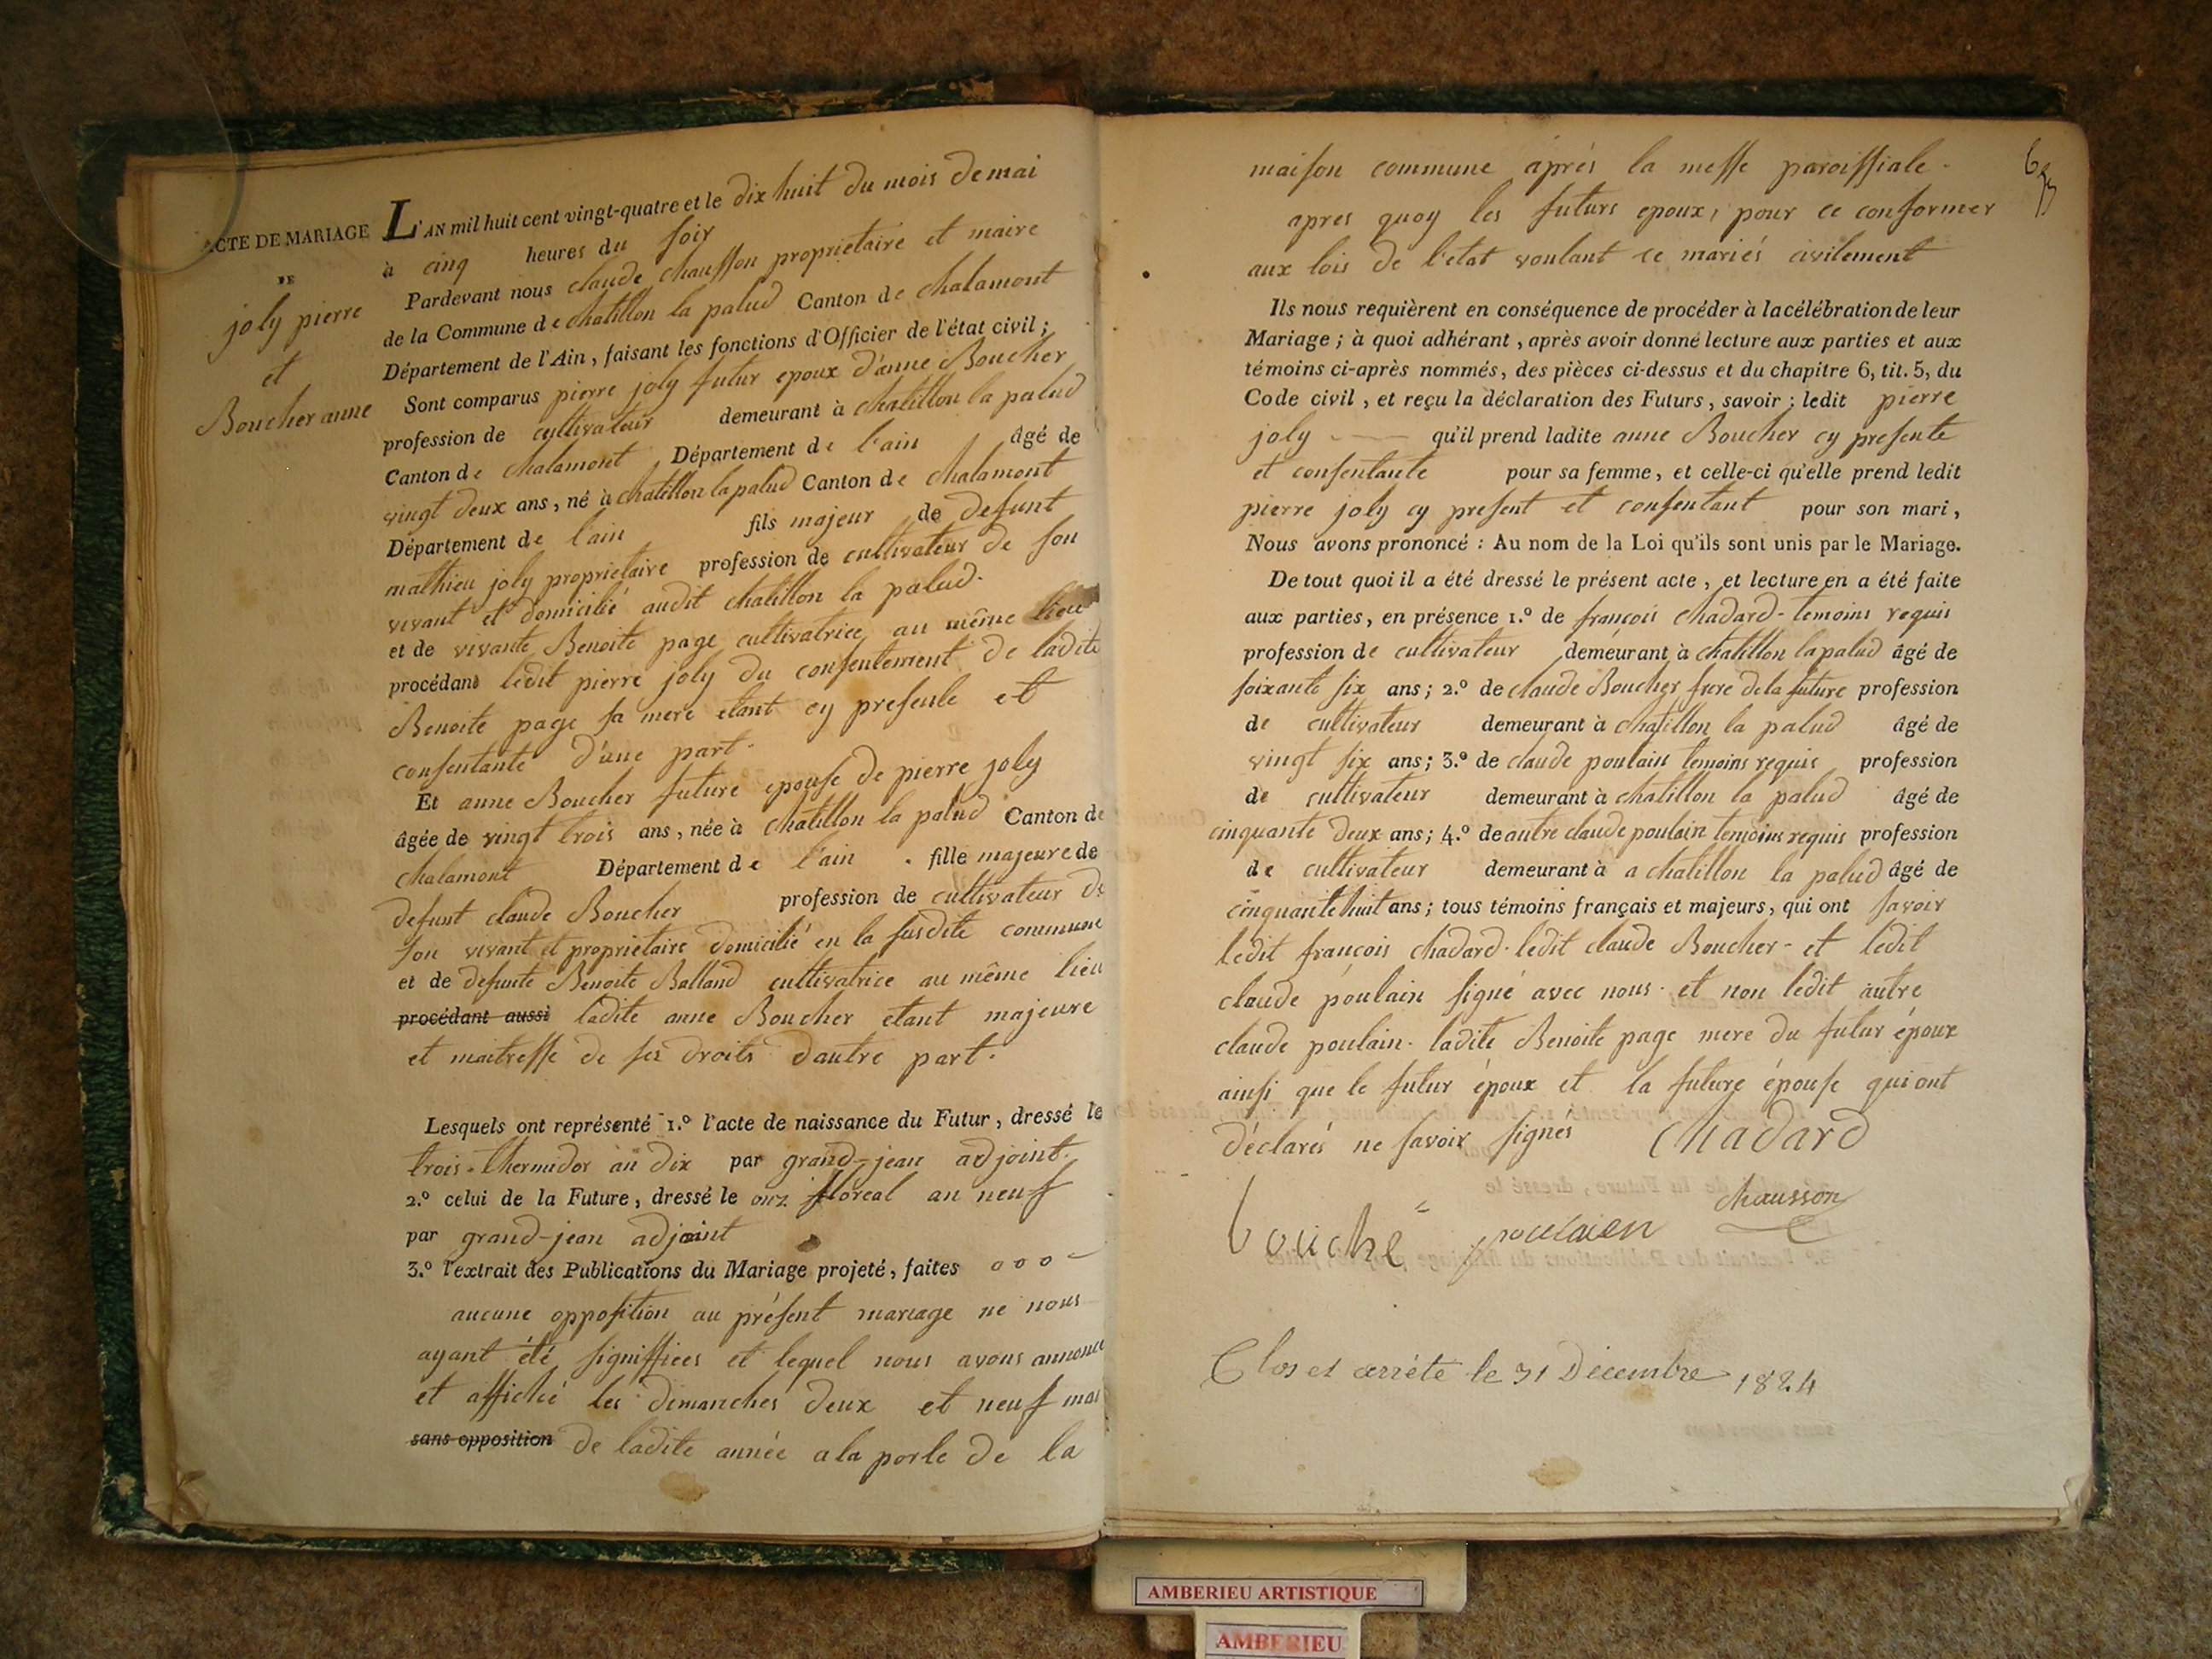 ACTE DE MARIAGE
DE
joly pierre
et
Boucher anne
L'AN mil huit cent vingt-quatre et le dix huit du mois de mai
à cinq heures du soir
Pardevant nous claude chausson proprietaire et maire
de la Commune de chatillon la palud Canton de chalamont
Département de l'Ain, faisant les fonctions d'Officier de l'état civil;
Sont comparus pierre joly futur epoux d'anne Boucher
profession de cultivateur demeurant à chatillon la palud
Canton de chalamont Département de l'ain âgé de
vingt deux ans, né à chatillon la palud Canton de chalamont
Département de l'ain fils majeur de defunt
mathieu joly proprietaire profession de cultivateur de son
vivant et domicilié audit chatillon la palud.
et de vivante Benoite page cultivatrice au même lieu
procédant ledit pierre joly du consentement de ladite
Benoite page sa mere etant cy presente et
consentante d'une part.
Et anne Boucher future epouse de pierre joly
âgée de vingt trois ans, née à chatillon la palud Canton de
chalamont Département de l'ain . fille majeure de
defunt claude Boucher profession de cultivateur de
son vivant et proprietaire domicilié en la susdite commune
et de defunte Benoite Balland cultivatrice au même lieu
procédant aussi ladite anne Boucher etant majeure
et maitresse de ses droits dautre part.
Lesquels ont représenté 1.º l'acte de naissance du Futur, dressé le
trois thermidor an dix par grand-jean adjoint.
2.º celui de la Future, dressé le onz floreal an neuf
par grand-jean adjoint
3.º l'extrait des Publications du Mariage projeté, faites o o o -
aucune opposition au présent mariage ne nous
ayant été signiffiees et lequel nous avons annoncé
et affiché les dimanches deux et neuf mai
sans opposition de ladite année a la porte de la
6
maison commune aprés la messe paroissiale.
apres quoy les futurs epoux, pour ce conformer
aux lois de l'etat voulant ce mariés civilement
Ils nous requièrent en conséquence de procéder à la célébration de leur
Mariage; à quoi adhérant, après avoir donné lecture aux parties et aux
témoins ci-après nommés, des pièces ci-dessus et du chapitre 6, tit. 5, du
Code civil, et reçu la déclaration des Futurs, savoir; ledit pierre
joly - — qu'il prend ladite anne Boucher cy presente
et consentante pour sa femme, et celle-ci qu'elle prend ledit
pierre joly cy present et consentant pour son mari,
Nous avons prononcé : Au nom de la Loi qu'ils sont unis par le Mariage.
De tout quoi il a été dressé le présent acte, et lecture en a été faite
aux parties, en présence 1.º de françois chadard - temoins requis
profession de cultivateur demeurant à chatillon la palud âgé de
soixante six ans; 2.º de claude Boucher frere de la future profession
de cultivateur demeurant à chatillon la palud âgé de
vingt six ans; 3.º de claude poulain temoins requis profession
de cultivateur demeurant à chatillon la palud âgé de
cinquante deux ans; 4.º de autre claude poulain temoins requis profession
de cultivateur demeurant à a chatillon la palud âgé de
cinquante huit ans; tous témoins français et majeurs, qui ont savoir
ledit françois chadard. ledit claude Boucher - et ledit
claude poulain signé avec nous. et non ledit autre
claude poulain. ladite Benoite page mere du futur époux
ainsi que le futur époux et la future épouse qui ont
déclarés ne savoir signés chadard
bouché poulaien chausson
Clos et arrété le 31 Décembre 1824
AMBERIEU ARTISTIQUE
AMBERIEU